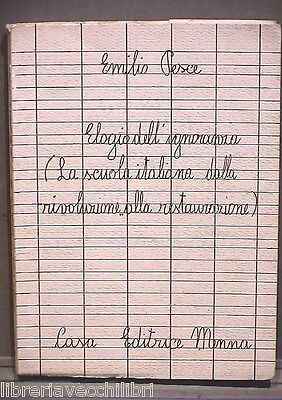 Emilio Pesce
Elogio dell'ignoranza
(La scuola italiana dalla
rivoluzione alla restaurazione)
Casa Editrice Menna
libreriavecchilibri